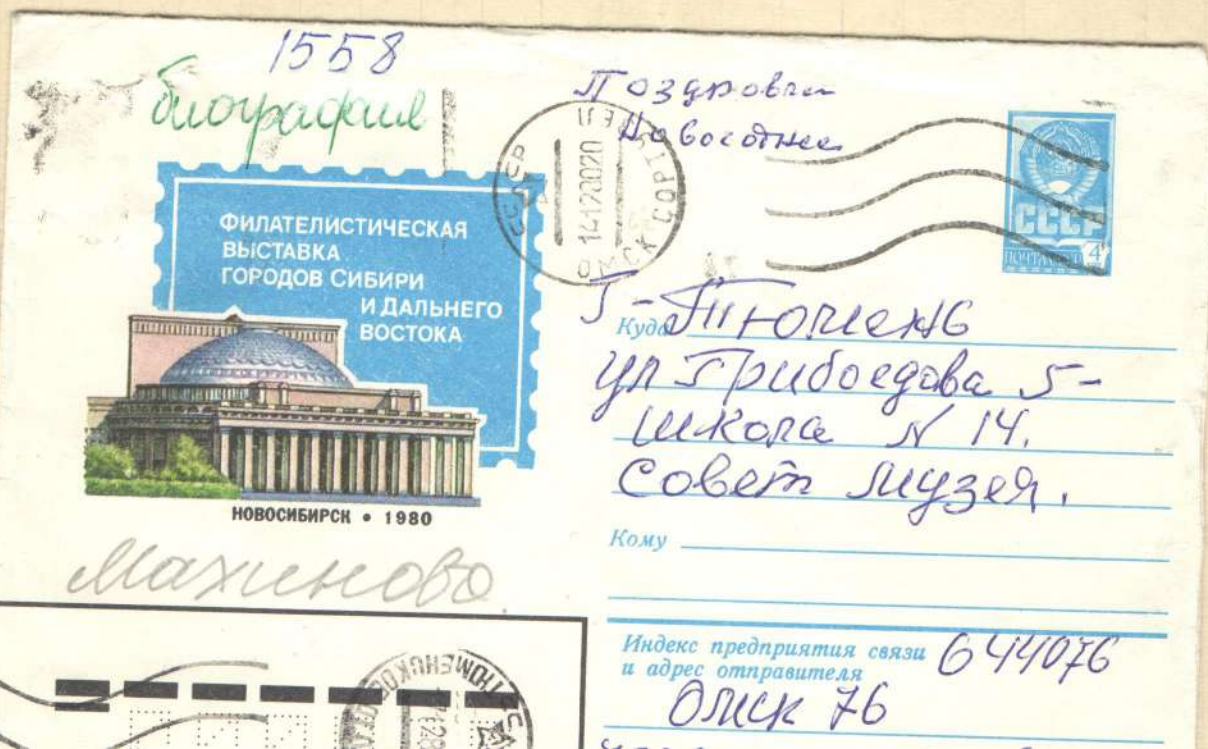 1558
биография
Поздровл
Новогодние
ФИЛАТЕЛИСТИЧЕСКАЯ
ВЫСТАВКА
ГОРОДОВ СИБИРИ
И ДАЛЬНЕГО
ВОСТОКА
НОВОСИБИРСК • 1980
Махиново
ОМСК
СССР
ПОЧТА
4
Куда г-Тюмень
ул Грибоедова 5-
школа N 14.
Совет музея.
Кому
Индекс предприятия связи
и адрес отправителя
644076
Омск 76